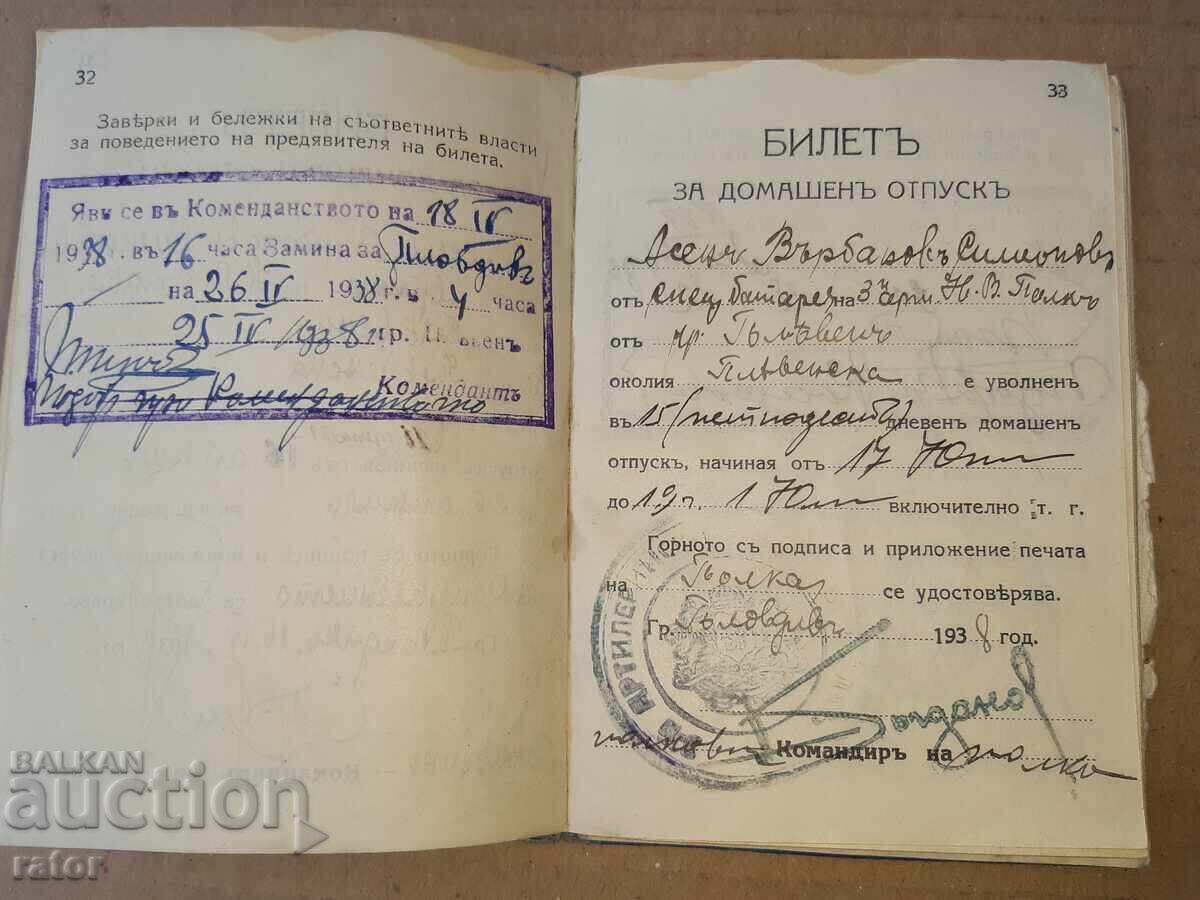 32
Завѣрки и бележки на съответнитѣ власти
за поведението на предявителя на билета.
Яви се въ Коменданството на 18 IV
1938. въ 16 часа Замина за Пловдивъ
на 26 IV 1938 г. в 4 часа
25 IV 1938 гр. Плѣвенъ
Комендантъ
33
БИЛЕТЪ
ЗА ДОМАШЕНЪ ОТПУСКЪ
Асенъ Върбановъ Симеоновъ
отъ спец. батарея на 3 арм. Полкъ
отъ гр. Плѣвенъ
околия Плѣвенска е уволненъ
въ 15 (петнадесетъ) дневенъ домашенъ
отпускъ, начиная отъ 17 Юни
до 1 Юли включително т. г.
Горното съ подписа и приложение печата
на Полка се удостовѣрява.
Гр. Пловдивъ 1938 год.
Командиръ на полка
АРТИЛЕ
BALKAN
auction
rator